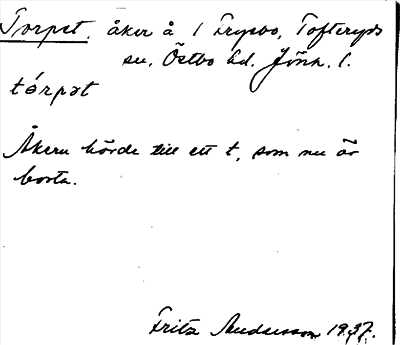 Torpet, åker å 1 Frysbo, Tofteryds
sn, Östbo hd. Jönk. l.
tórpət
Åkern hörde till ett t, som nu är
borta.
Fritz Andersson 1937.